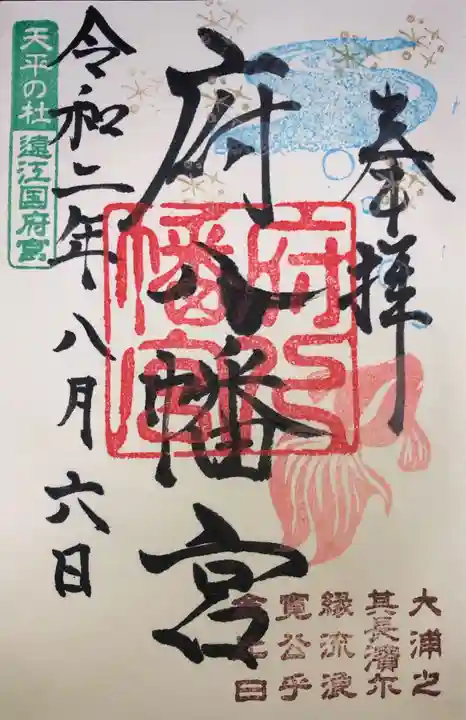 奉拝
府八幡宮
府八
幡宮
令和二年八月六日
天平の杜
遠江国府宮
大浦之
其長濱尓
縁流浪
寛公乎